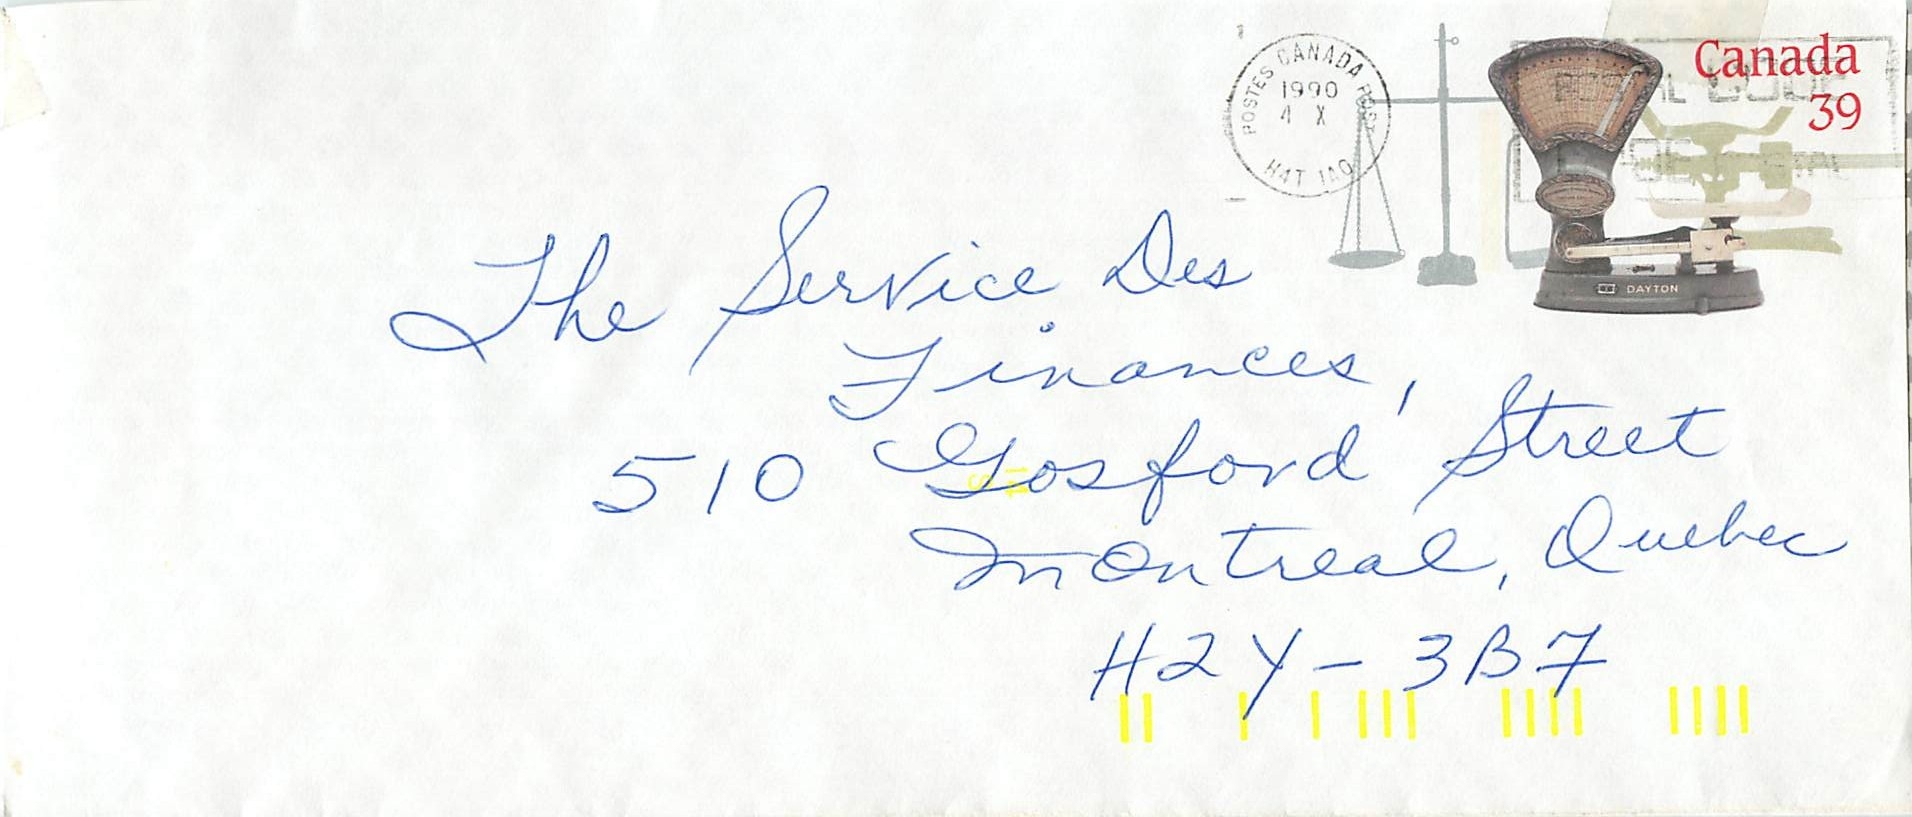 POSTES CANADA POST
1990
4 X
H4T 1A0
Canada
39
POSTAL CODE
DAYTON
The Service Des
Finances,
510 Gosford Street
Montreal, Quebec
H2Y-3B7